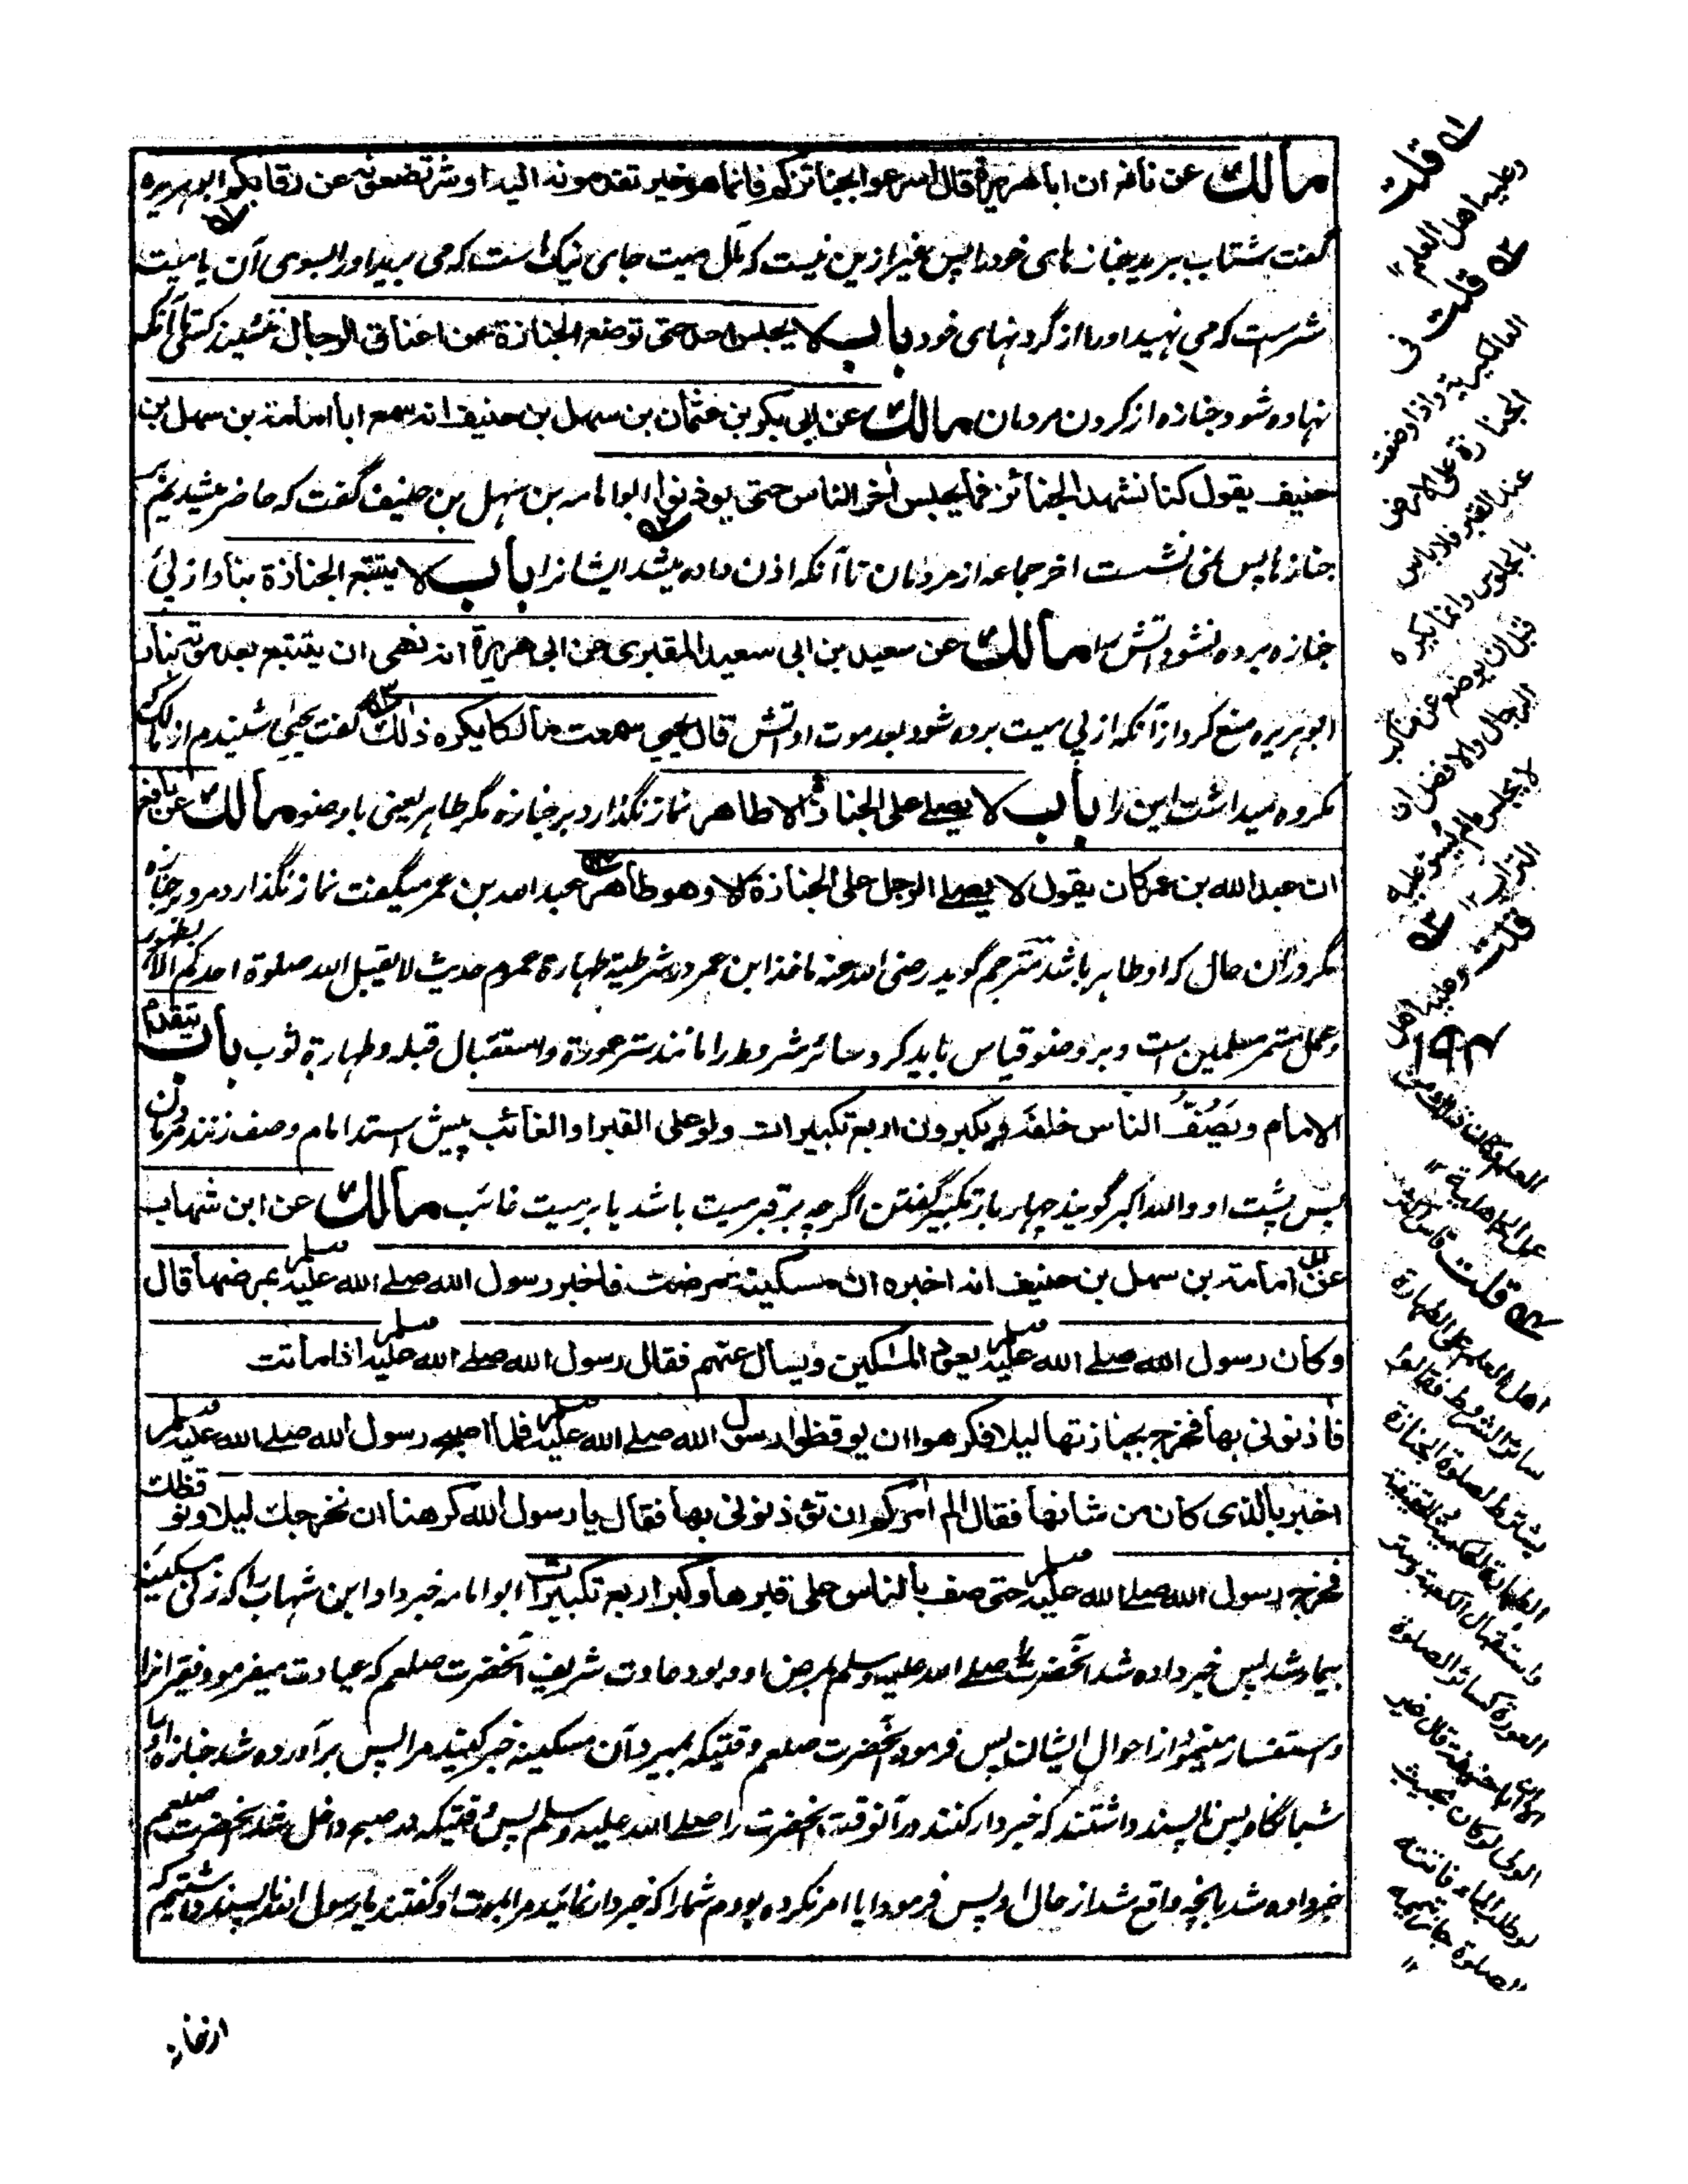 مالك عن نافع ان ابا هريرة قال اسرعوا بجنائزكم فانما هو خير تقدمونه اليه او شر تضعونه عن رقابكم ابو هريره
گفت شتاب ببريد جنازهای خود را پس غير ازين نيست که مآل ميت جای نيک است که می بريد او را بسوی آن يا ميت
شر است که می نهيد او را از گردنهای خود باب لا يجلس احد حتى توضع الجنازة عن اعناق الرجال ننشيند کسی تا آنکه
نهاده شود جنازه از گردن مردمان مالك عن ابي بكر بن عثمان بن سهل بن حنيف انه سمع ابا امامة بن سهل بن
حنيف يقول كنا نشهد الجنائز فما يجلس اخر الناس حتى يوذنوا ابو امامه بن سهل بن حنيف گفت که حاضر ميشديم بر
جنازها پس نمی نشست اخر جماعه از مردمان تا آنکه اذن داده ميشد ايشانرا باب لا يتبع الجنازة بنار از پی
جنازه برده نشود آتش را مالك عن سعيد بن ابی سعيد المقبری عن ابی هريرة انه نهى ان يتبع بعد موته بنار
ابو هريره منع کرد از آنکه از پی ميت برده شود بعد موت او آتش قال يحيی سمعت مالكا يكره ذلك گفت يحيی شنيدم از مالک که
مکروه ميداشت اين را باب لا يصلے على الجنازة الا طاهر نماز نگذارد بر جنازه مگر طاهر يعنی با وضو مالك عن نافع
ان عبد الله بن عمر كان يقول لا يصلے الرجل على الجنازة الا وهو طاهر عبد الله بن عمر ميگفت نماز نگذارد مرد بر جنازه
مگر در آن حال که او طاهر باشد مترجم گويد رضی الله عنه ماخذ ابن عمر در شرطية طهارة عموم حديث لا يقبل الله صلوة احدكم الا بطهور
وعمل مستمر مسلمين است و بر وضو قياس بايد کرد سائر شروط را مانند ستر عورة و استقبال قبله و طهارة ثوب باب يتقدم
الامام ويصف الناس خلفه ويكبرون اربع تكبيرات ولو على القبر او الغائب پيش استد امام و صف زنند مردمان
پس پشت او و الله اکبر گويند چهار بار تکبير گفتن اگرچه بر قبر ميت باشد يا بر ميت غائب مالك عن ابن شهاب
عن ابی امامة بن سهل بن حنيف انه اخبره ان مسكينة مرضت فاخبر رسول الله صلے الله عليه وسلم بمرضها قال
وكان رسول الله صلے الله عليه وسلم يعود المسكين ويسأل عنهم فقال رسول الله صلے الله عليه وسلم اذا ماتت
فاذنونی بها فخرج بجنازتها ليلا فكرهوا ان يوقظوا رسول الله صلے الله عليه وسلم فلما اصبح رسول الله صلے الله عليه وسلم
اخبر بالذی كان من شانها فقال الم امركم ان تؤذنونی بها فقال يا رسول الله كرهنا ان نخرجك ليلا ونوقظك
فخرج رسول الله صلے الله عليه وسلم حتى صف بالناس على قبرها وكبر اربع تكبيرات ابو امامه خبر داد ابن شهاب را که زنی مسکينه
بيمار شد پس خبر داده شد آنحضرت را صلے الله عليه وسلم بمرض او و بود عادت شريف آنحضرت صلعم که عيادت ميفرمود فقيرانرا
و استفسار مينمود از احوال ايشان پس فرمود آنحضرت صلعم وقتيکه بميرد آن مسکينه خبر کنيد مرا پس برآورده شد جنازه او را
شبانگاه پس ناپسند داشتند که خبردار کنند در آنوقت آنحضرت را صلے الله عليه وسلم پس وقتيکه در صبح داخل شد آنحضرت صلعم
خبر داده شد بآنچه واقع شد از حال او پس فرمود آيا امر نکرده بودم شما را که خبردار نمائيد مرا بموت او گفتند يا رسول الله ناپسند داشتيم که
از نماز
۱ قلت
وعليه اهل العلم
۲ قلت فی
العالمگيرية واذا وضعت
الجنازة على الارض
عند القبر فلا باس
بالجلوس وانما يكره
قبل ان يوضع عن مناكب
الرجال والافضل ان
لا يجلس مالم يسو عليه
التراب
۳ قلت وعليه اهل
العلم وكان ذلك من
عمل الجاهلية
۴ قلت
اهل العلم على الطهارة
سائر الشروط فقالوا
يشترط لصلوة الجنازة
الطهارة الحكمية والحقيقية
واستقبال الكعبة وستر
العورة كسائر الصلوة
الا ان ابا حنيفة قال غير
الولی لو كان بحيث
لو طلب الماء فاتته
الصلوة جاز تيممه